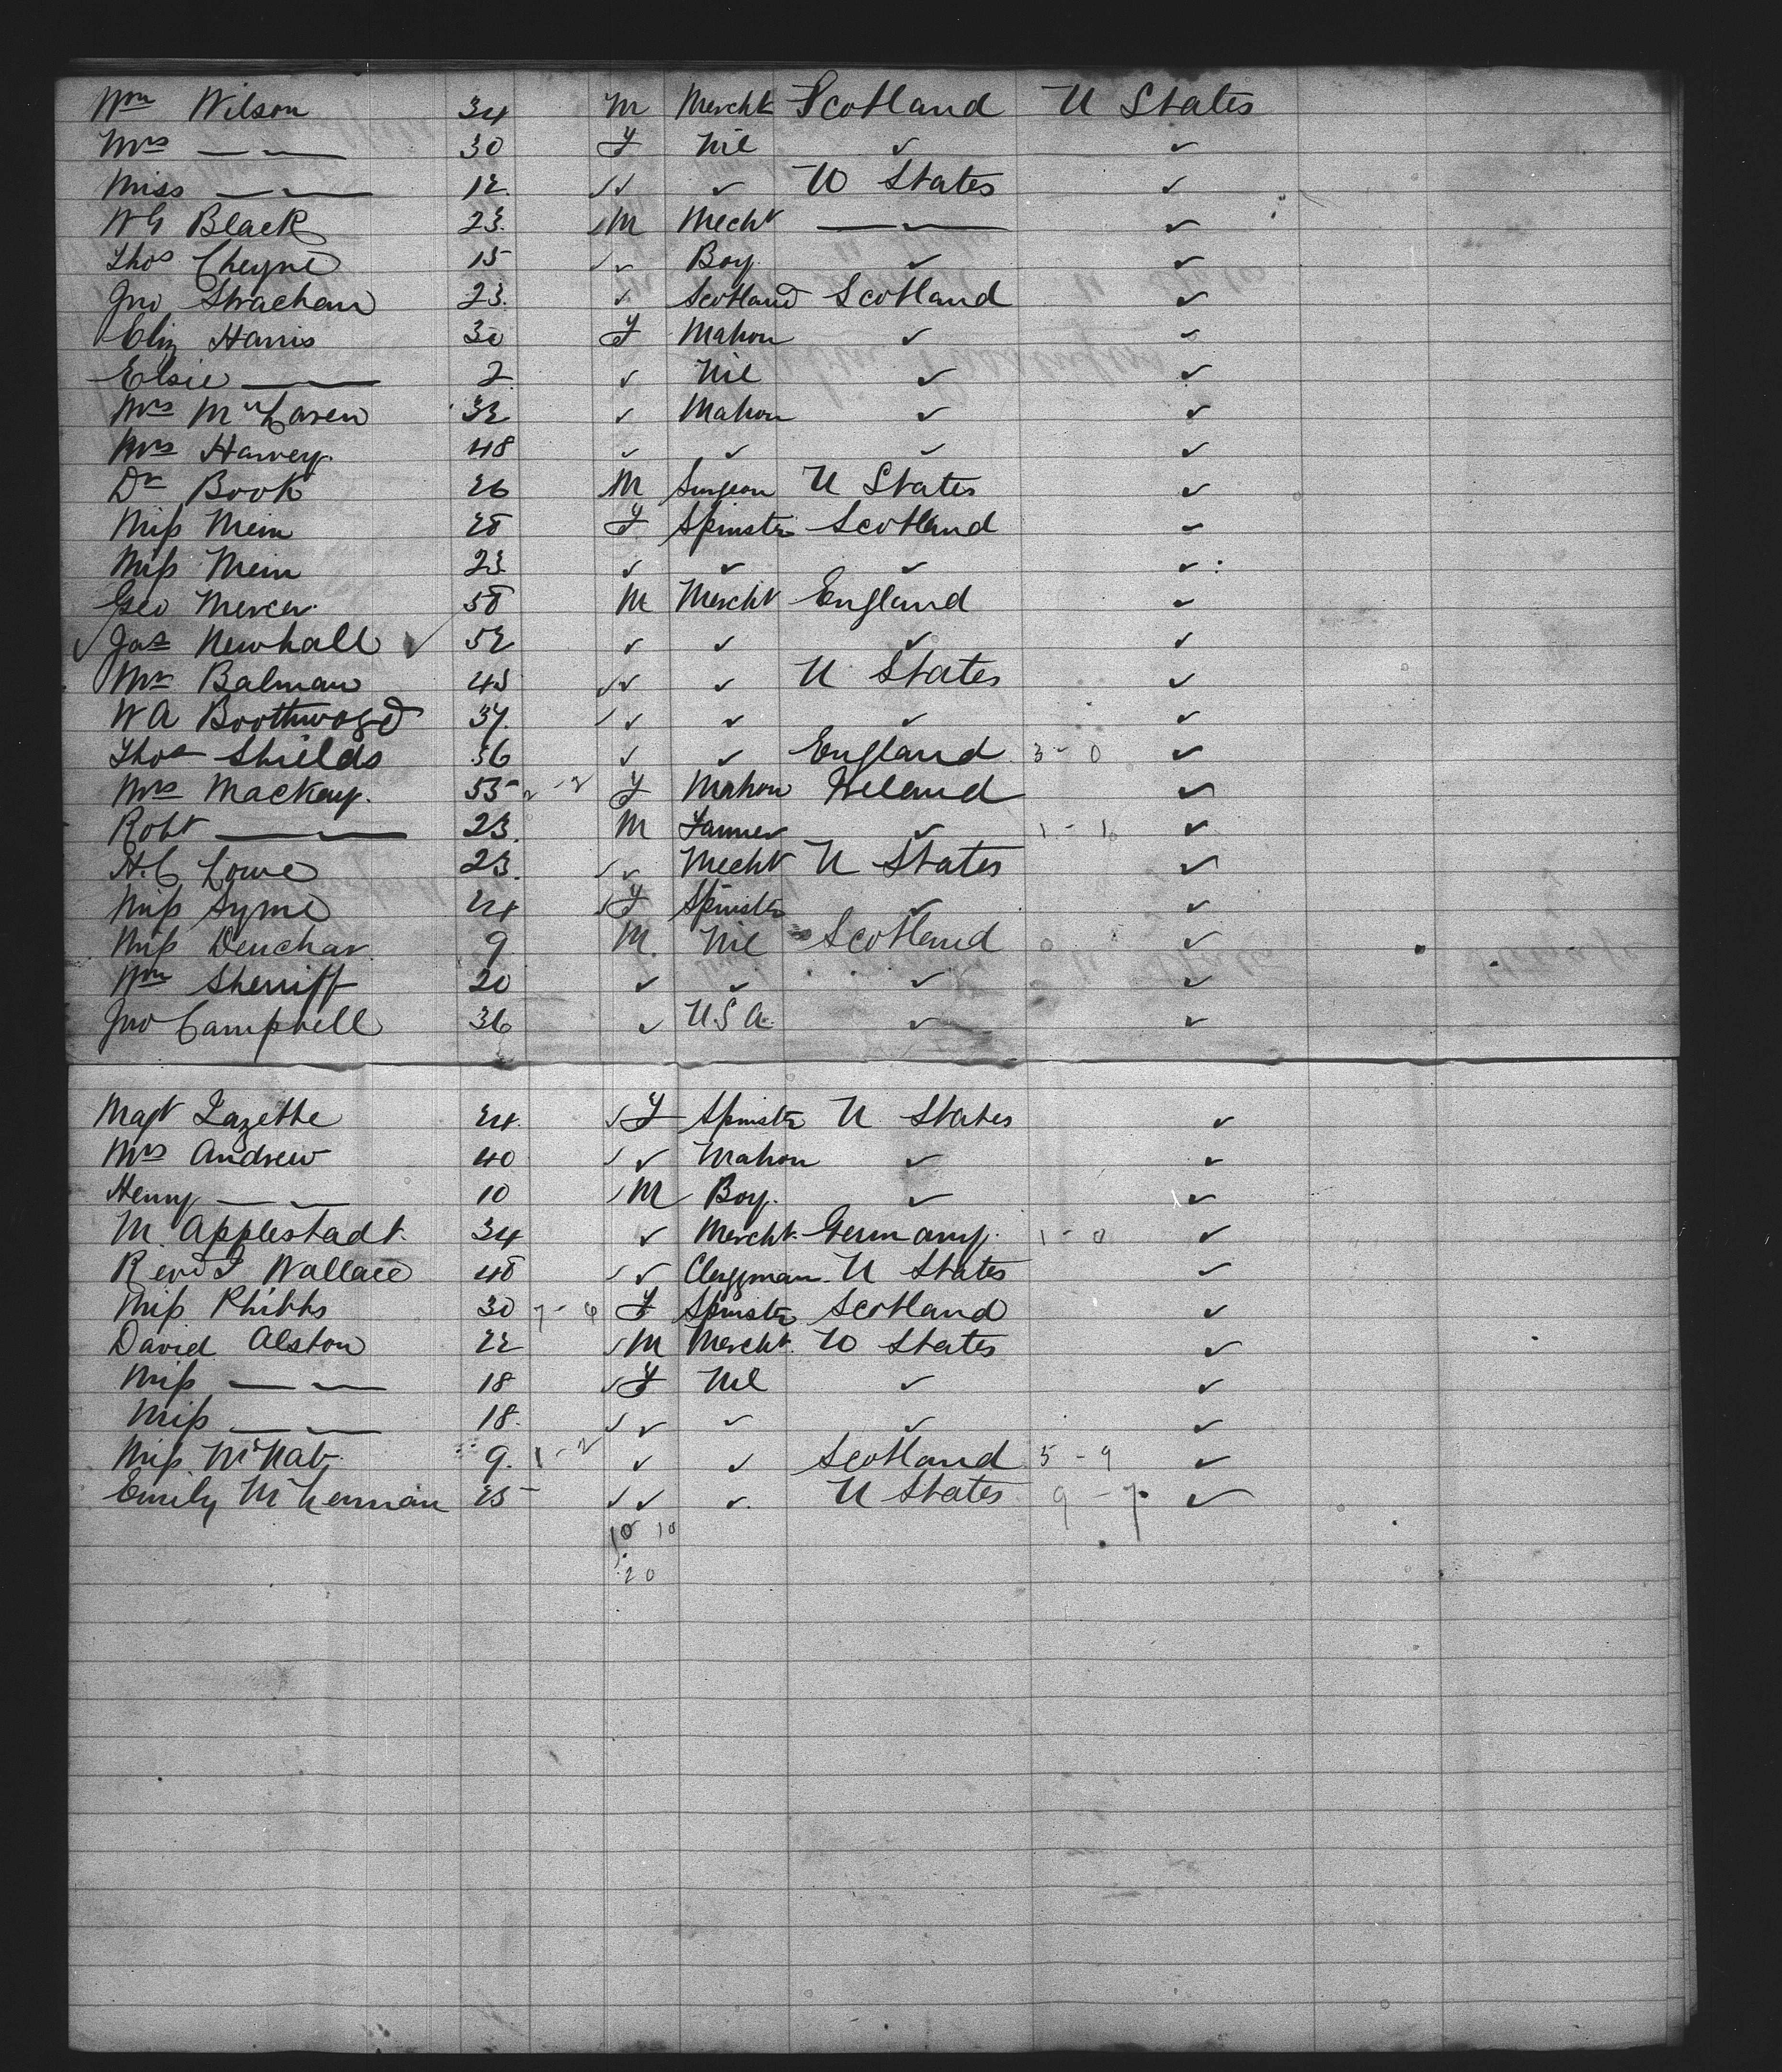 Wm Wilson 34 M Mercht Scotland U States
Mrs — — 30 F Nil ✓ ✓
Miss — — 12 ✓✓ ✓ U States ✓
W G Black 23 ✓M Mecht — — ✓
Thos Cheyne 15 ✓✓ Boy ✓ ✓
Jno Strachan 23 ✓ Scotland Scotland ✓
Eliz Harris 30 F Matron ✓ ✓
Elsie — — 2 ✓ Nil ✓ ✓
Mrs McLaren 32 ✓ Matron ✓ ✓
Mrs Harvey 48 ✓ ✓ ✓ ✓
Dr Book 26 M Surgeon U States ✓
Miss Mein 28 F Spinstr Scotland ✓
Miss Mein 23 ✓ ✓ ✓ ✓
Geo Mercer 58 M Mercht England ✓
✓ Jas Newhall ✓ 52 ✓ ✓ ✓ ✓
Mr Balman 45 ✓✓ ✓ U States ✓
W A Boothwood 37 ✓✓ ✓ ✓ ✓
Thos Shields 36 ✓ ✓ England 3 - 0 ✓
Mrs Mackay 55 2 - 2 F Matron Ireland ✓
Robt — — 23 M Farmer ✓ ✓
H. C Lowe 23 ✓✓ Mecht U States ✓
Miss Syme 24 ✓F Spinstr ✓ ✓
Miss Deuchar 9 M Nil Scotland ✓
Wm Sherriff 20 ✓ ✓ ✓ ✓
Jno Campbell 36 ✓ U.S.A. ✓ ✓
Magt Lazette 24 ✓F Spinstr U States ✓
Mrs Andrew 40 ✓✓ Matron ✓ ✓
Henry — — 10 ✓M Boy ✓ ✓
M. Applestadt 34 ✓ Mercht Germany 1 - 0 ✓
Revd J Wallace 48 ✓✓ Clergyman U States ✓
Miss Phibbs 30 7 - 6 F Spinstr Scotland ✓
David Alston 22 ✓M Mercht U States ✓
Miss — — 18 ✓F Nil ✓ ✓
Miss — — 18 ✓✓ ✓ ✓ ✓
Miss McNab 9 1 - 2 ✓ ✓ Scotland 5 - 9 ✓
Emily 25 ✓✓ ✓ U States 9 - 7 ✓
10 10
20